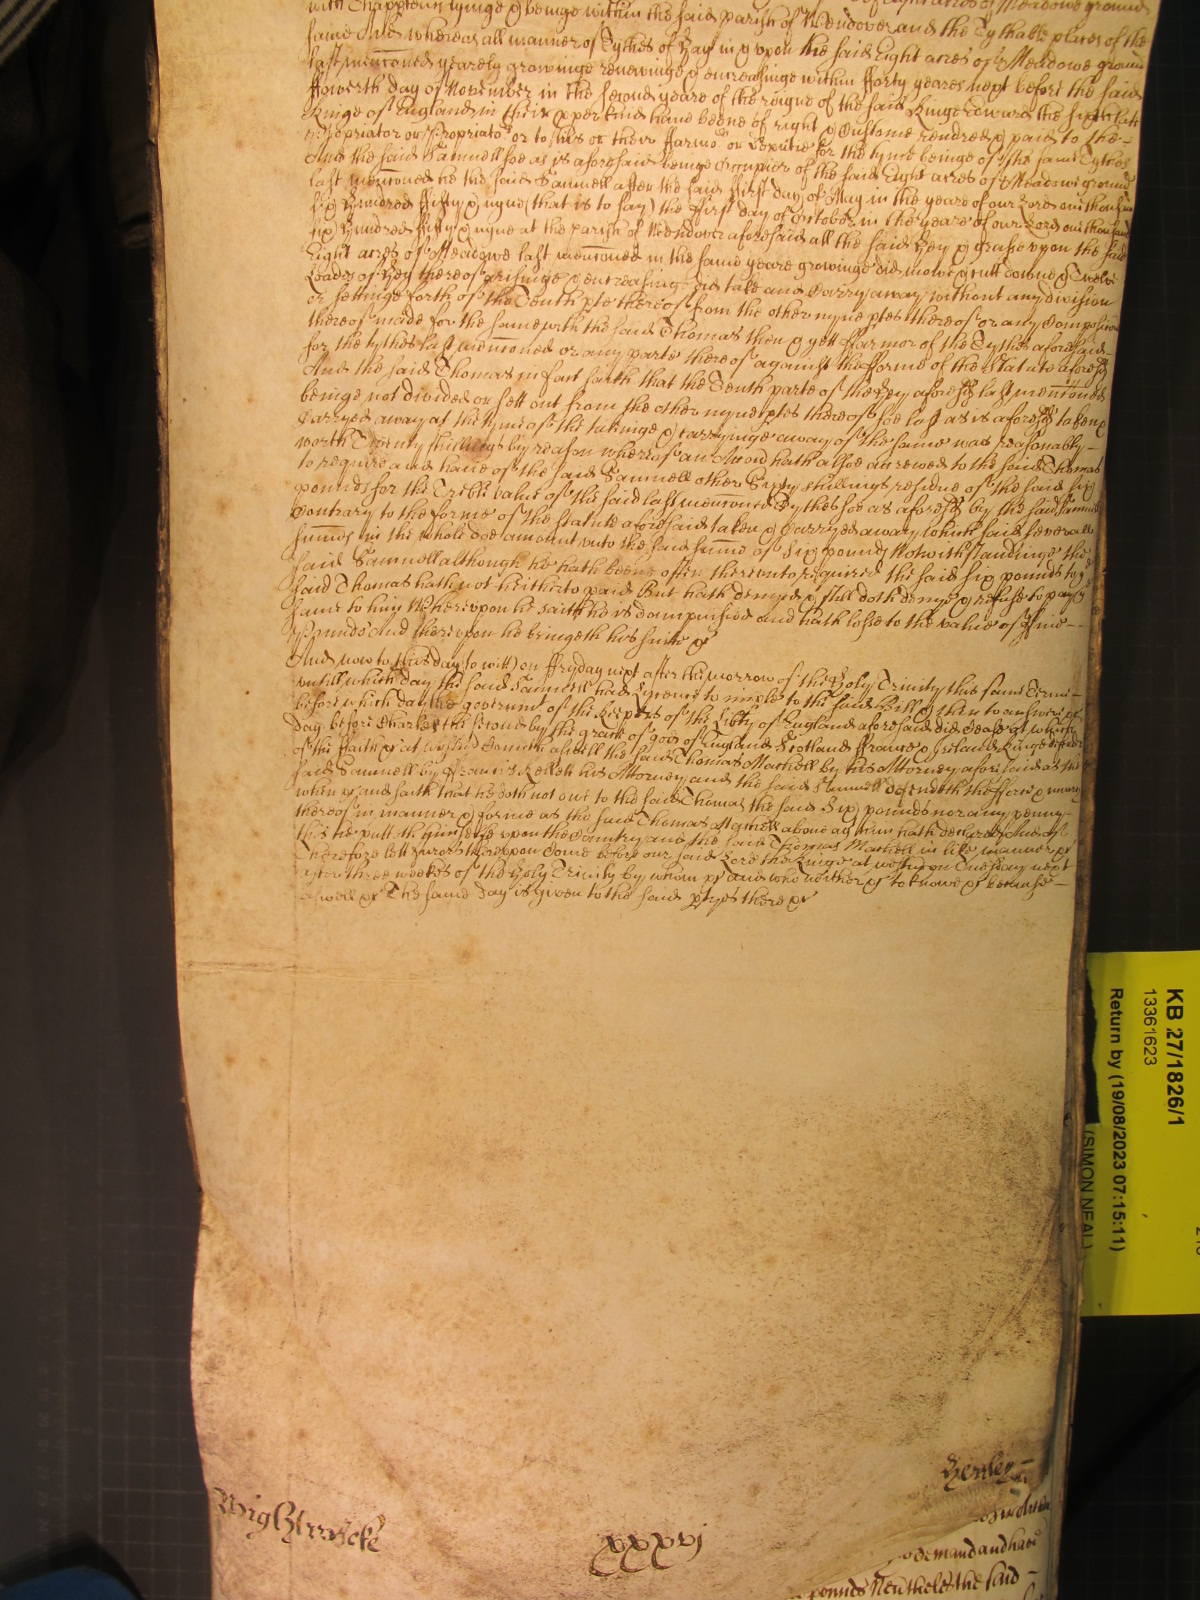 with Thapptenn lyinge & beinge within the said parish of Wendover and the Tythable places of the
same And whereas all manner of Tythes of Hay in & upon the said Eight acres of Meadowe ground
last menconed yearely growinge renewinge & encreasinge within fforty yeares next before the said
ffowerth day of November in the second yeare of the reigne of the said Kinge Edward the sixth late
Kinge of England in their pper kind have beene of right & Custome rendred & paid to the
or Propriato or to his or their ffarmo or Deputie for the tyme beinge of the same Tythes
And the said Samuell soe as is aforesaid beinge Occupier of the said Eight acres of Meadowe ground
last menconed he the said Samuell after the said ffirst day of May in the yeare of our Lord one thousand
six Hundred ffifty & nyne (that is to say) the ffirst day of October in the yeare of our Lord one thousand
six Hundred ffifty & nyne at the parish of Wendover aforesaid all the said Hey & grasse upon the said
Eight acres of Meadowe last menconed in the same yeare growinge did mowe & cutt downe & Twelve
Loades of Hey thereof arisinge & encreasinge did take and Carry away without any division
or settinge forth of the Tenth pte thereof from the other nyne ptes thereof or any Composicon
thereof made for the same with the said Thomas then & yett ffarmor of the Tythes aforesaid
for the tythes last menconed or any parte thereof against the fforme of the Statute aforesd
And the said Thomas in fact saith that the Tenth parte of the Hey aforesd last menconed
beinge not divided or sett out from the other nyne ptes thereof soe last as is aforesd taken &
Carryed away at the tyme of the takinge & carryinge away of the same was reasonably
worth Twenty shillings by reason whereof an Accon hath alsoe accrewed to the said Thomas
to require and have of the said Samuell other Sixty shillings residue of the said six
pounds for the Treble value of the said last menconed Tythes soe as aforesd by the said Samuell
Contrary to the forme of the Statute aforesaid taken & Carryed away which said severall
summes in the whole doe amount unto the said summe of six pounds Notwithstandinge the
said Samuell although he hath beene often thereunto required the said six pounds to ye
said Thomas hath not hitherto paid But hath denyed & still doth denye & refuse to pay ye
same to him Whereupon he saith he is dampnified and hath losse to the value of ffive
Pounds And thereupon he bringeth his suite &c
And now to this day (to witt) on ffryday next after the morrow of the Holy Trinity this same Terme
untill which day the said Samuell had Lycence to imple to the said Bill & then to answere &c
before which day the governmt of the keepers of the Libty of England aforesaid did cease at which
day before Charles the second by the grace of god of England Scotland ffrance & Ireland Kinge defender
of the ffaith &c at Westmr Commeth aswell the said Thomas Machell by his Attorney aforesaid as the
said Samuell by ffrancis Kellett his Attorney and the said Samuell defendeth the fforce & iniury
when &c and saith that he doth not owe to the said Thomas the said Six pounds nor any penny
thereof in manner & forme as the said Thomas Machell above agt him hath declared And of
this he putteth himselfe upon the Country and the said Thomas Machell in like manner &c
Therefore lett Jurors thereupon Come before our said Lord the Kinge at Westmr on Tuesday next
after three weekes of the Holy Trinity by whom &c and who neither &c to knowe &c because
aswell &c The same day is given to the said ptyes there &c
Henley
Wightwicke
xxxvj
to demand and have
pounds Neutheles the said
KB 27/1826/1
13361623
Return by (19/08/2023 07:15:11)
(SIMON NEAL)